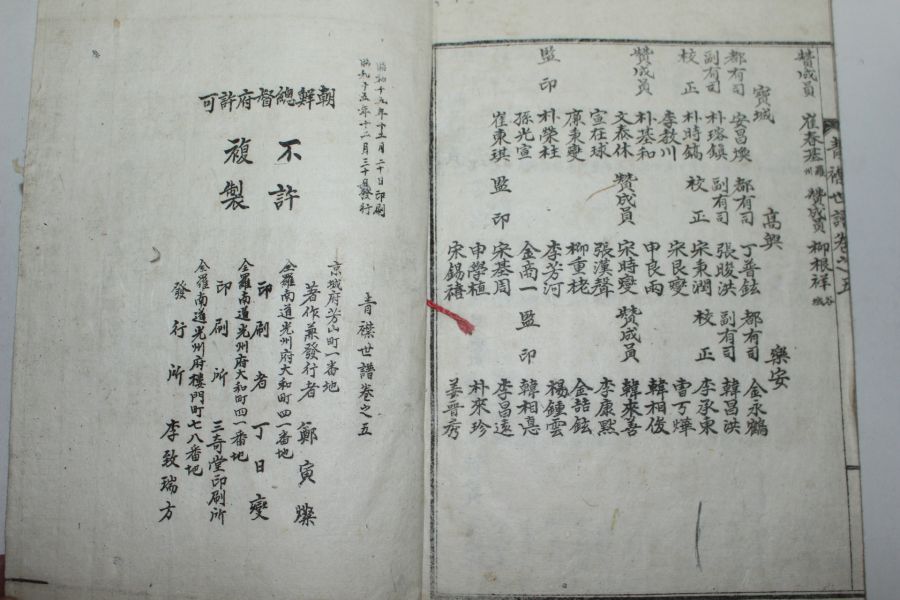 靑襟世譜卷之五
贊成員 崔春基 羅州 贊成員 柳根祥 谷城
寶城 高興 樂安
都有司 安昌煥 都有司 丁普鉉 都有司 金永鶴
副有司 朴瑢鎭 副有司 張畯洪 副有司 韓昌洪
校正 朴時鎬 校正 宋秉潤 校正 李承東
李敎川 宋民燮 曺 燁
贊成員 朴基和 申良雨 韓相俊
文泰休 贊成員 宋時燮 贊成員 韓來善
宣在球 張漢聲 李康熙
廉秉燮 柳重栳 金喆鉉
監印 朴榮柱 李芳河 楊鍾雲
孫光宣 監印 金商一 監印 韓相悳
崔東琪 宋基周 李昌遠
申學植 朴來珍
宋錫禧 姜晋秀
昭和十五年十二月二十日印刷
昭和十五年十二月三十日發行
朝鮮總督府許可
不許
複製
靑襟世譜卷之五
京城府芳山町一番地
著作兼發行者 鄭寅燦
全羅南道光州府大和町四一番地
印刷者 丁日燮
全羅南道光州府大和町四一番地
印刷所 三奇堂印刷所
全羅南道光州府樓門町七八番地
發行所 李致瑞方